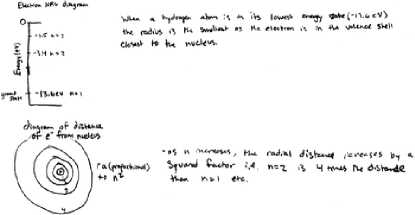 Electron NRG diagram
0
-1.5 n=3
-3.4 n=2
Energy(eV)
ground state
-13.6eV n=1
When a hydrogen atom is in its lowest energy state (-13.6 eV)
the radius is the smallest as the electron is in the valence shell
closest to the nucleus.
diagram of distance
of e⁻ from nucleus
r α (proportional)
to n²
3
4
-as n increases, the radial distance increases by a
squared factor i.e. n=2 is 4 times the distance
than n=1 etc.